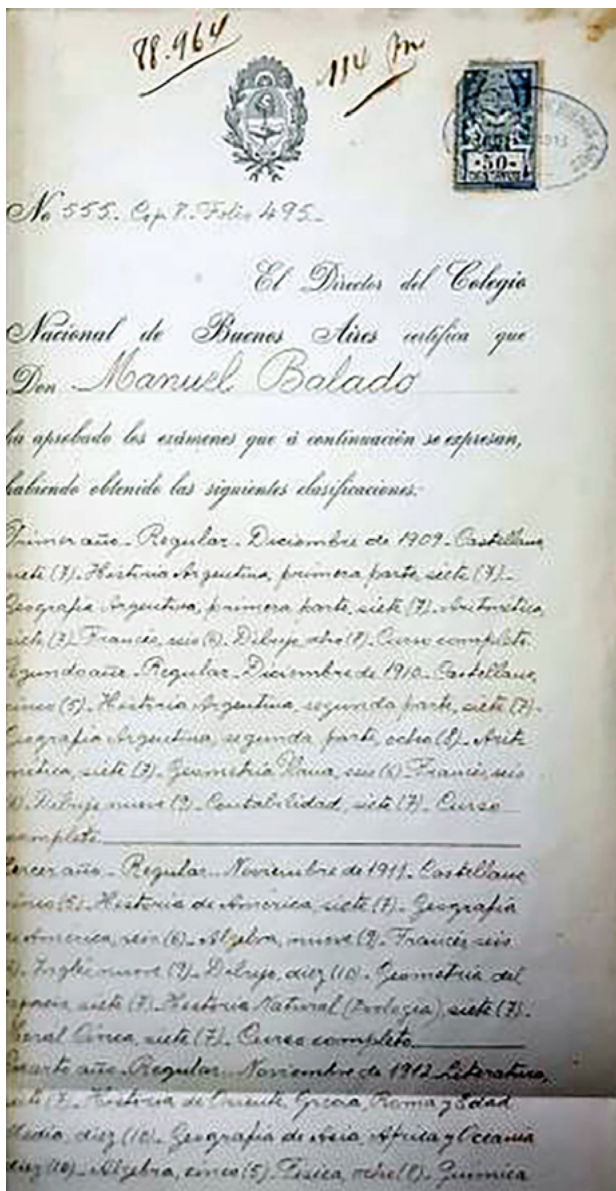 88.964
114
-50-
No 555. Cop 8. Folio 495.
El Director del Colegio
Nacional de Buenos Aires certifica que
Don Manuel Balado
ha aprobado los exámenes que á continuación se expresan,
habiendo obtenido las siguientes clasificaciones:
Primer año. Regular. Diciembre de 1909. Castellano,
siete (7). Historia Argentina, primera parte, siete (7).
Geografía Argentina, primera parte, siete (7). Aritmética,
siete (7). Francés, seis (6). Dibujo, ocho (8). Curso completo.
Segundo año. Regular. Diciembre de 1910. Castellano,
cinco (5). Historia Argentina, segunda parte, siete (7).
Geografía Argentina, segunda parte, ocho (8). Arit
mética, siete (7). Geometría Plana, seis (6). Francés, seis
(6). Dibujo nueve (9). Contabilidad, siete (7). Curso
completo.
Tercer año. Regular. Noviembre de 1911. Castellano
cinco (5). Historia de América, siete (7). Geografía
de América, seis (6). Algebra, nueve (9). Francés seis
(6). Inglés nueve (9). Dibujo, diez (10). Geometría del
espacio, siete (7). Historia Natural (Zoología), siete (7).
siete (7). Curso completo.
Cuarto año. Regular. Noviembre de 1912. Literatura,
siete (7). Historia de Oriente, Grecia, Roma y Edad
Media, diez (10). Geografía de Asia, Africa y Oceanía
diez (10). Algebra, cinco (5). Física, ocho (8). Química